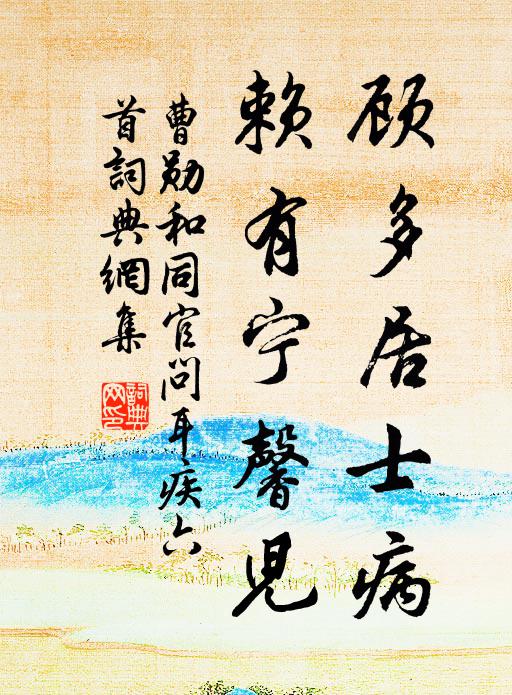 顾多居士病
赖有宁馨児
曹勋和同官问耳疾六
首詞典網集
詞典
网印